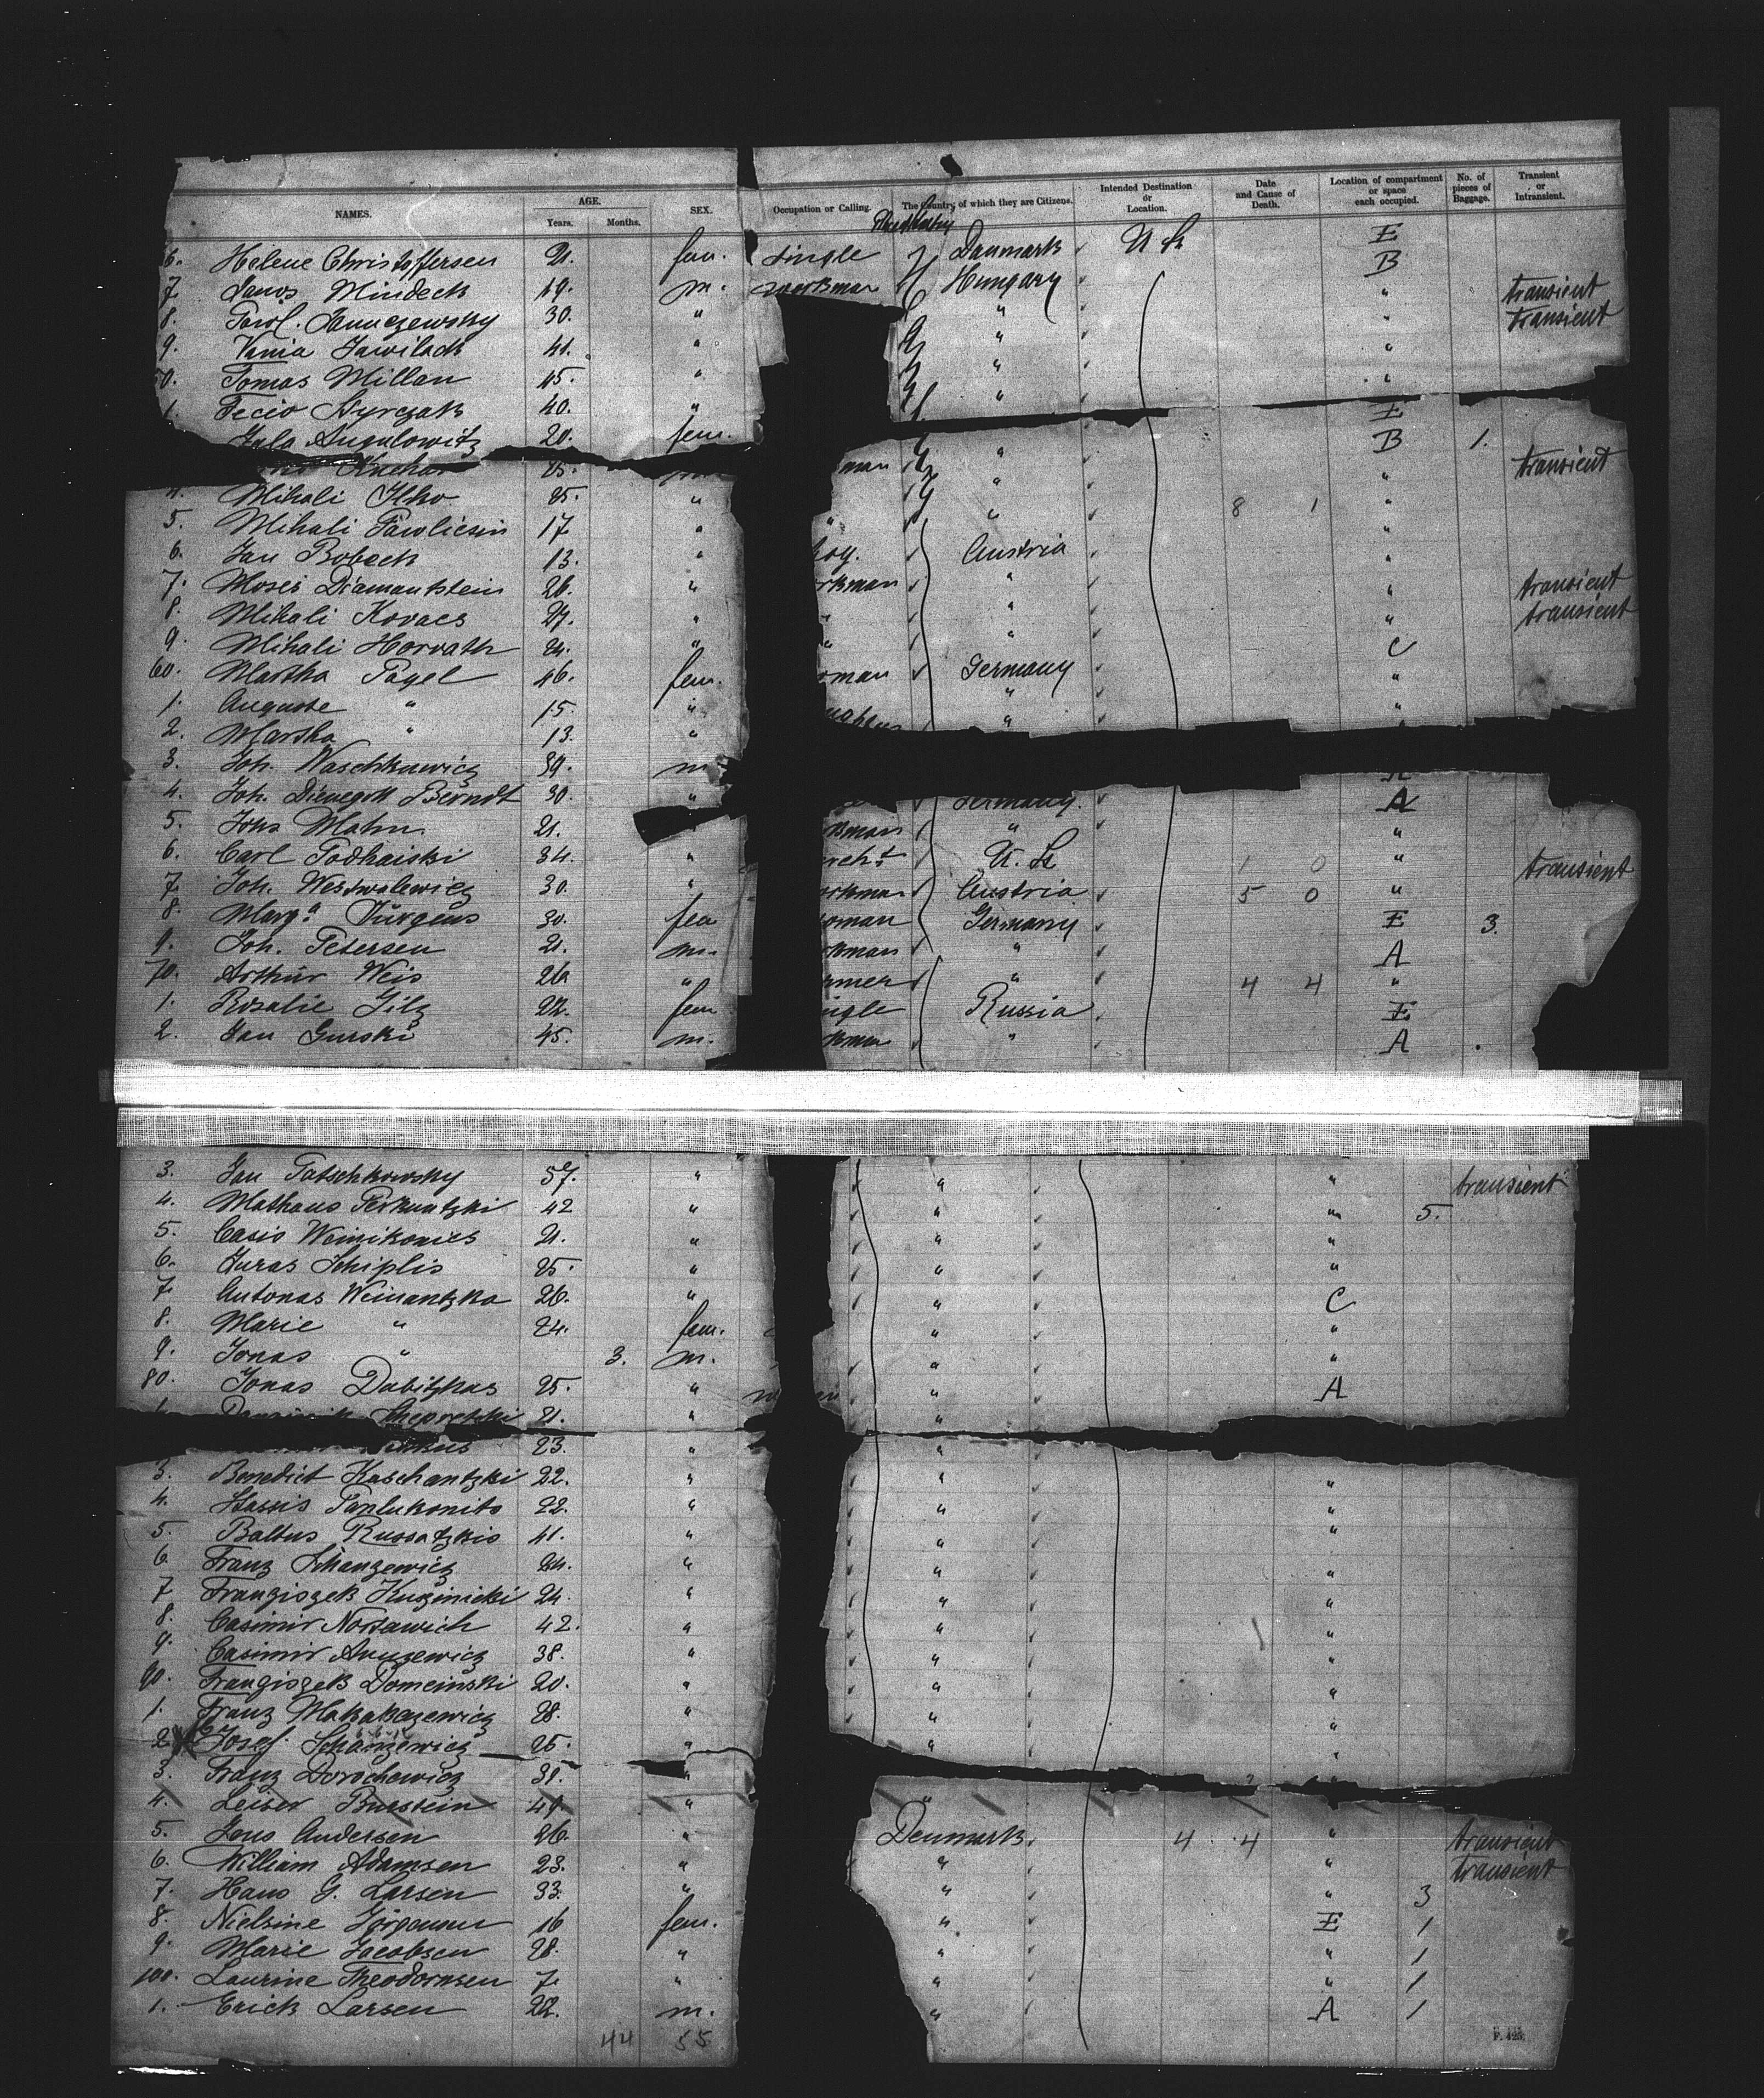 NAMES. AGE. Years. Months. SEX. Occupation or Calling. The Country of which they are Citizens. Intended Destination or Location. Date and Cause of Death. Location of compartment or space each occupied. No. of pieces of Baggage. Transient or Intransient.
6. Helene Christoffersen 21. fem. single Danmark U S E
7. Janos Mindeck 19. m. workman Hungary B
8. 30. " " " transient
9. Vania Jawilack 41. " " " transient
50. Tomas Millan 45. " " "
1. Fecio Hyrczak 40. " " "
Jula Angulowitz 20. fem. E
25. man " B 1.
4. Mihali Ilko 25. " " " transient
5. Mihali Pawlicsin 17 " " " 8 1 "
6. Jan Bobeck 13. " boy. Austria "
7. Moses Diamantstein 26. " rkman " "
8. Mihali Kovacs 27. " " " " transient
9. Mihali Horvath 24. " " " " transient
60. Martha Pagel 46. fem. oman Germany C
1. Auguste " 15. " " "
2. Martha " 13. " "
3. Joh. Waschkewicz 39. m
4. Joh. Dienegott Berndt 30. " Germany. A
5. Johs Mahn 21. kman " "
6. Carl Podhaiski 34. " rcht U. S. 1 0 "
7. Joh. Westwalewicz 30. " orkman Austria 5 0 " transient
8. Marg.a Jürgens 30. fem oman Germany E 3.
9. Joh. Petersen 21. m. rkman " A
70. Arthur Weis 26 " rmer " 4 4 "
1. Rosalie Gilz 22. fem ingle Russia E
2. Jan Gurski 45. m. kman " A
3. Jan Patschkowsky 57. " " " transient
4. Mathaus Perkuntzki 42 " " " 5.
5. Casis Weinikonies 21. " " "
6. Juras Schiplis 25. " " "
7. Antonas Weinantzka 26. " " C
8. Marie " 24. fem. " "
9. Jonas " 3. m. " "
80. Jonas Dabitzkas 25. " " A
Schepretzki 21. " "
23. " "
3. Benedict Kaschantzki 22. " " "
4. Stassis Panlukonits 22. " " "
5. Baltus Russatzkis 41. " " "
6 Franz Schanzewicz 24. " " "
7 Franziszek Kuszinicki 24. " " "
8. Casimir Norsawich 42. " " "
9. Casimir Anuzewicz 38. " " "
90. Franziszek Domeinski 20. " " "
1. Franz Makakazewicz 28. " " "
2 Josef Schänzewicz 25. " " "
3. Franz Dorochewicz 39. " "
4. Leiser Burstein 49. " "
5. Jens Andersen 26. " Denmark 4 4 " transient
6. William Adamsen 23. " " " transient
7. Hans G. Larsen 33. " " " 3
8. Nielsine Jörgensen 16 fem. " E 1
9. Marie Jacobsen 28. " " " 1
100. Laurine Theodornsen 7. " " " 1
1. Erick Larsen 22. m. " A 1
44 55
F. 425.